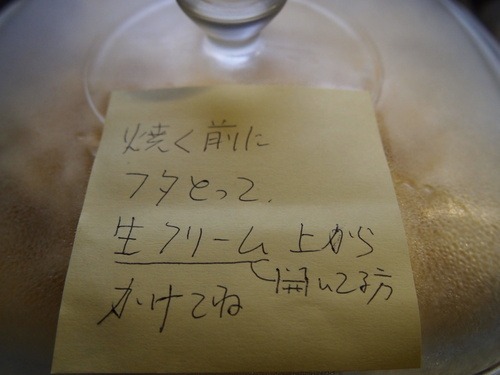 焼く前に
フタとって、
生クリーム上から
開いてる方
かけてね